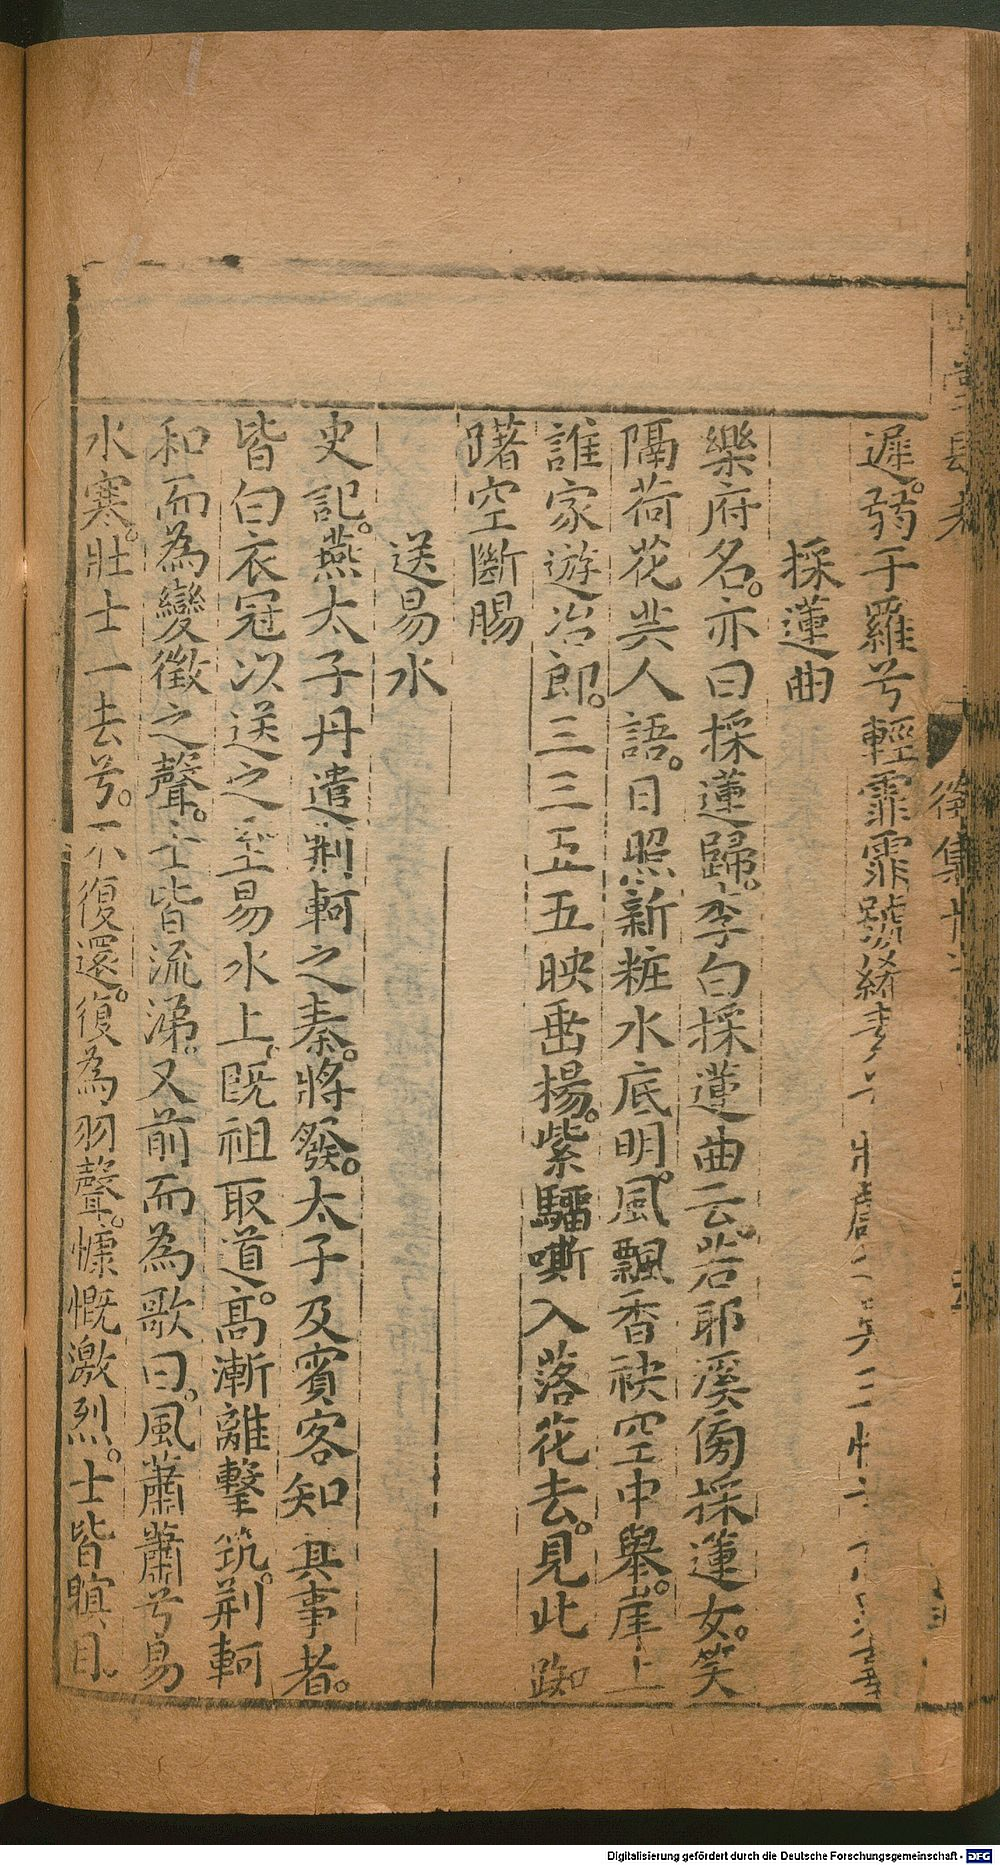 遲。弱于羅兮輕霏霏號絺
採蓮曲
樂府名。亦曰採蓮歸。李白採蓮曲云。若耶溪傍採蓮女。笑
隔荷花共人語。日照新粧水底明。風飄香袂空中舉。崖上
誰家遊冶郎。三三五五映垂楊。紫騮嘶入落花去。見此踟
躇空斷腸
送易水
史記。燕太子丹遣荆軻之秦。將發。太子及賓客知其事者。
皆白衣冠以送之至易水上。既祖取道。高漸離擊筑。荆軻
和而為變徵之聲。士皆流涕。又前而為歌曰。風蕭蕭兮易
水寒。壯士一去兮。不復還。復為羽聲。慷慨激烈。士皆瞋目。
Digitalisierung gefördert durch die Deutsche Forschungsgemeinschaft - DFG